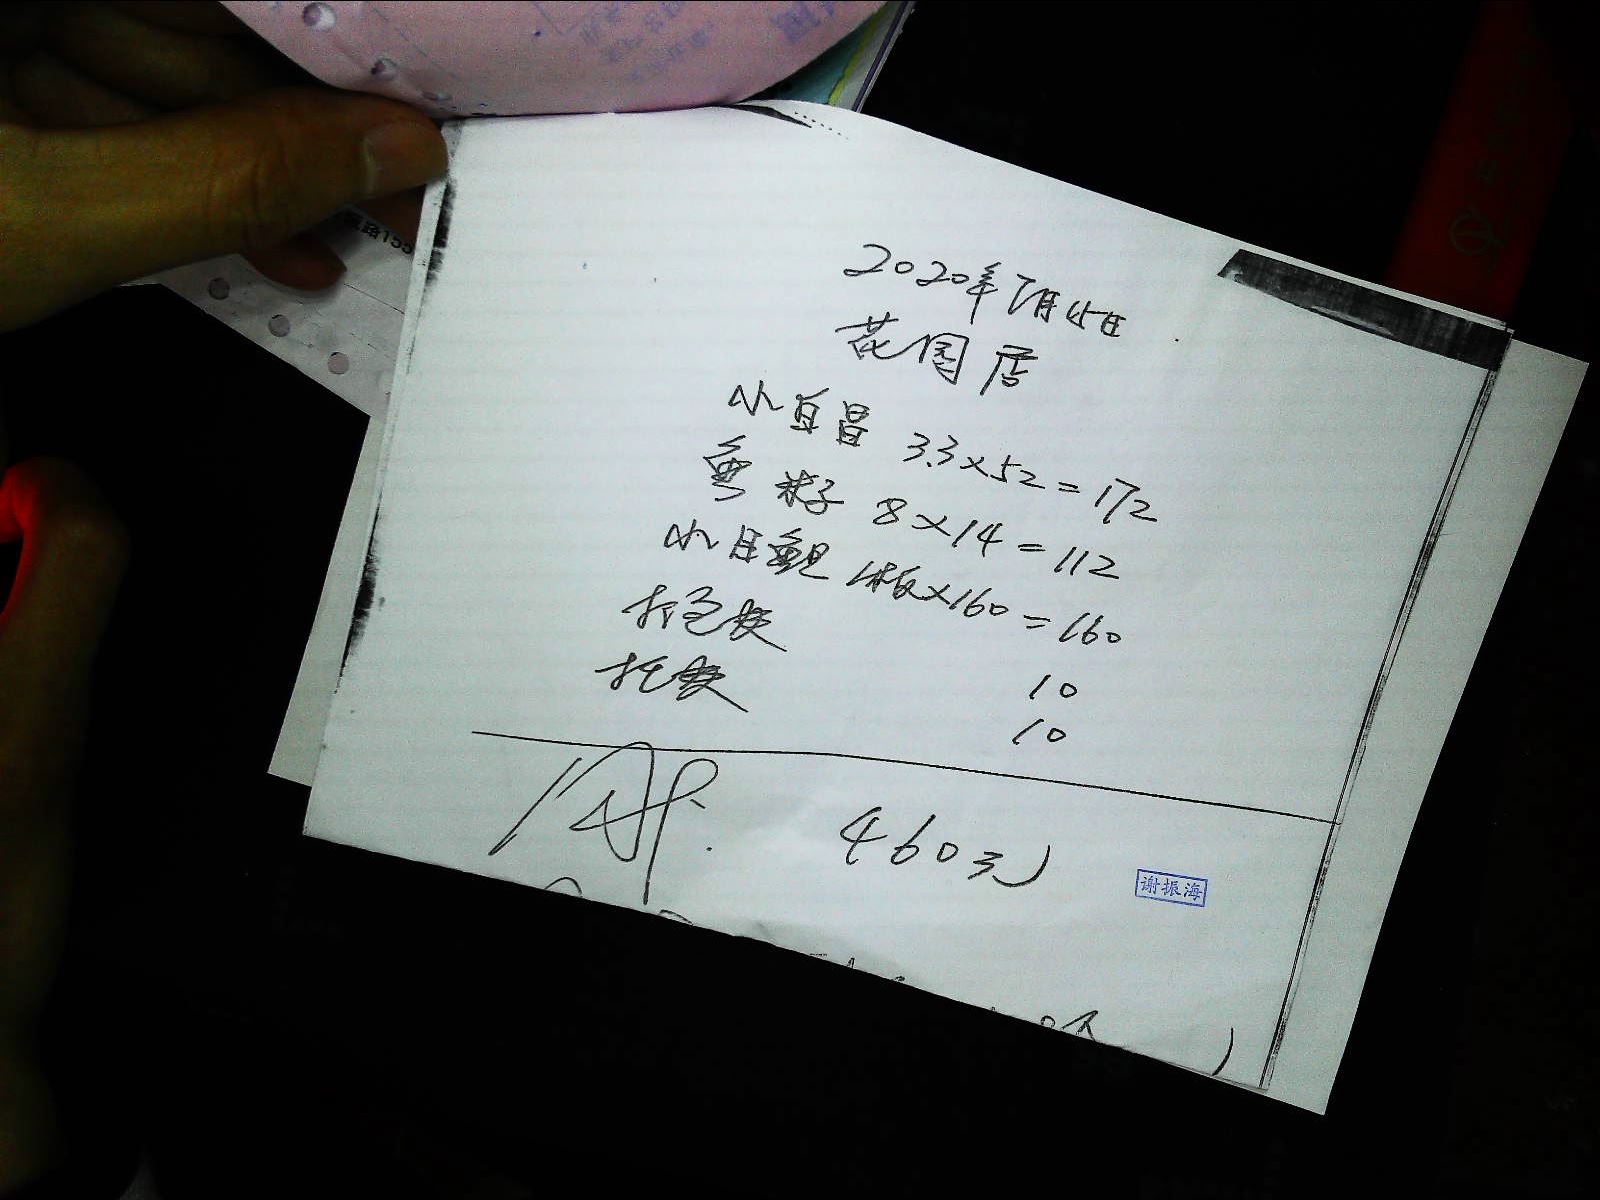 2020年7月15日
花园店
小白昌 3.3×52=172
鱼籽 8×14=112
小目鱼 1板×160=160
打包费 10
托费 10
460元
谢振海